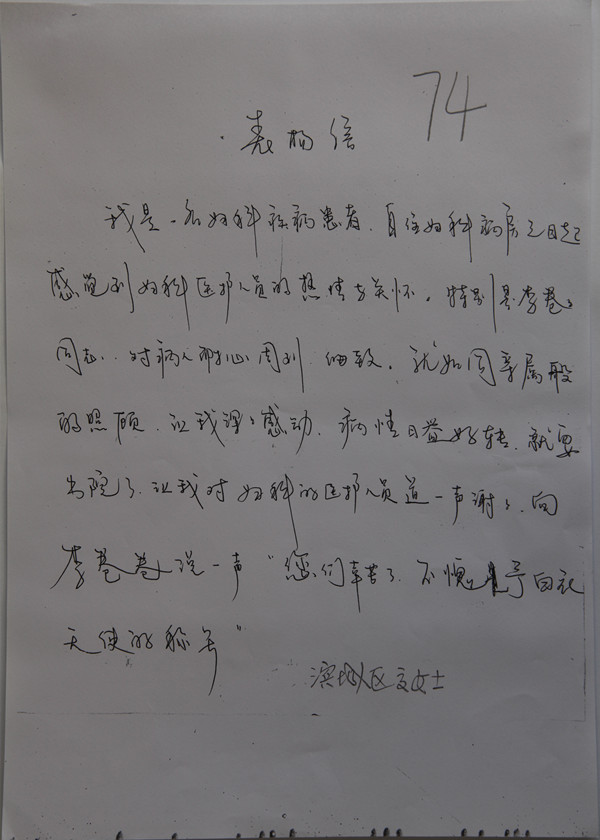 74
表扬信
我是一名妇科疾病患者，自住妇科病房之日起
感觉到妇科医护人员的热情与关怀。特别是李
同志，对病人耐心周到、细致。犹如同亲属般
的照顾，让我深深感动，病情日益好转，就要
出院了，让我对妇科的医护人员道一声谢谢，向
李 说一声“您们辛苦了，不愧 白衣
天使的称号”
滨城区 女士